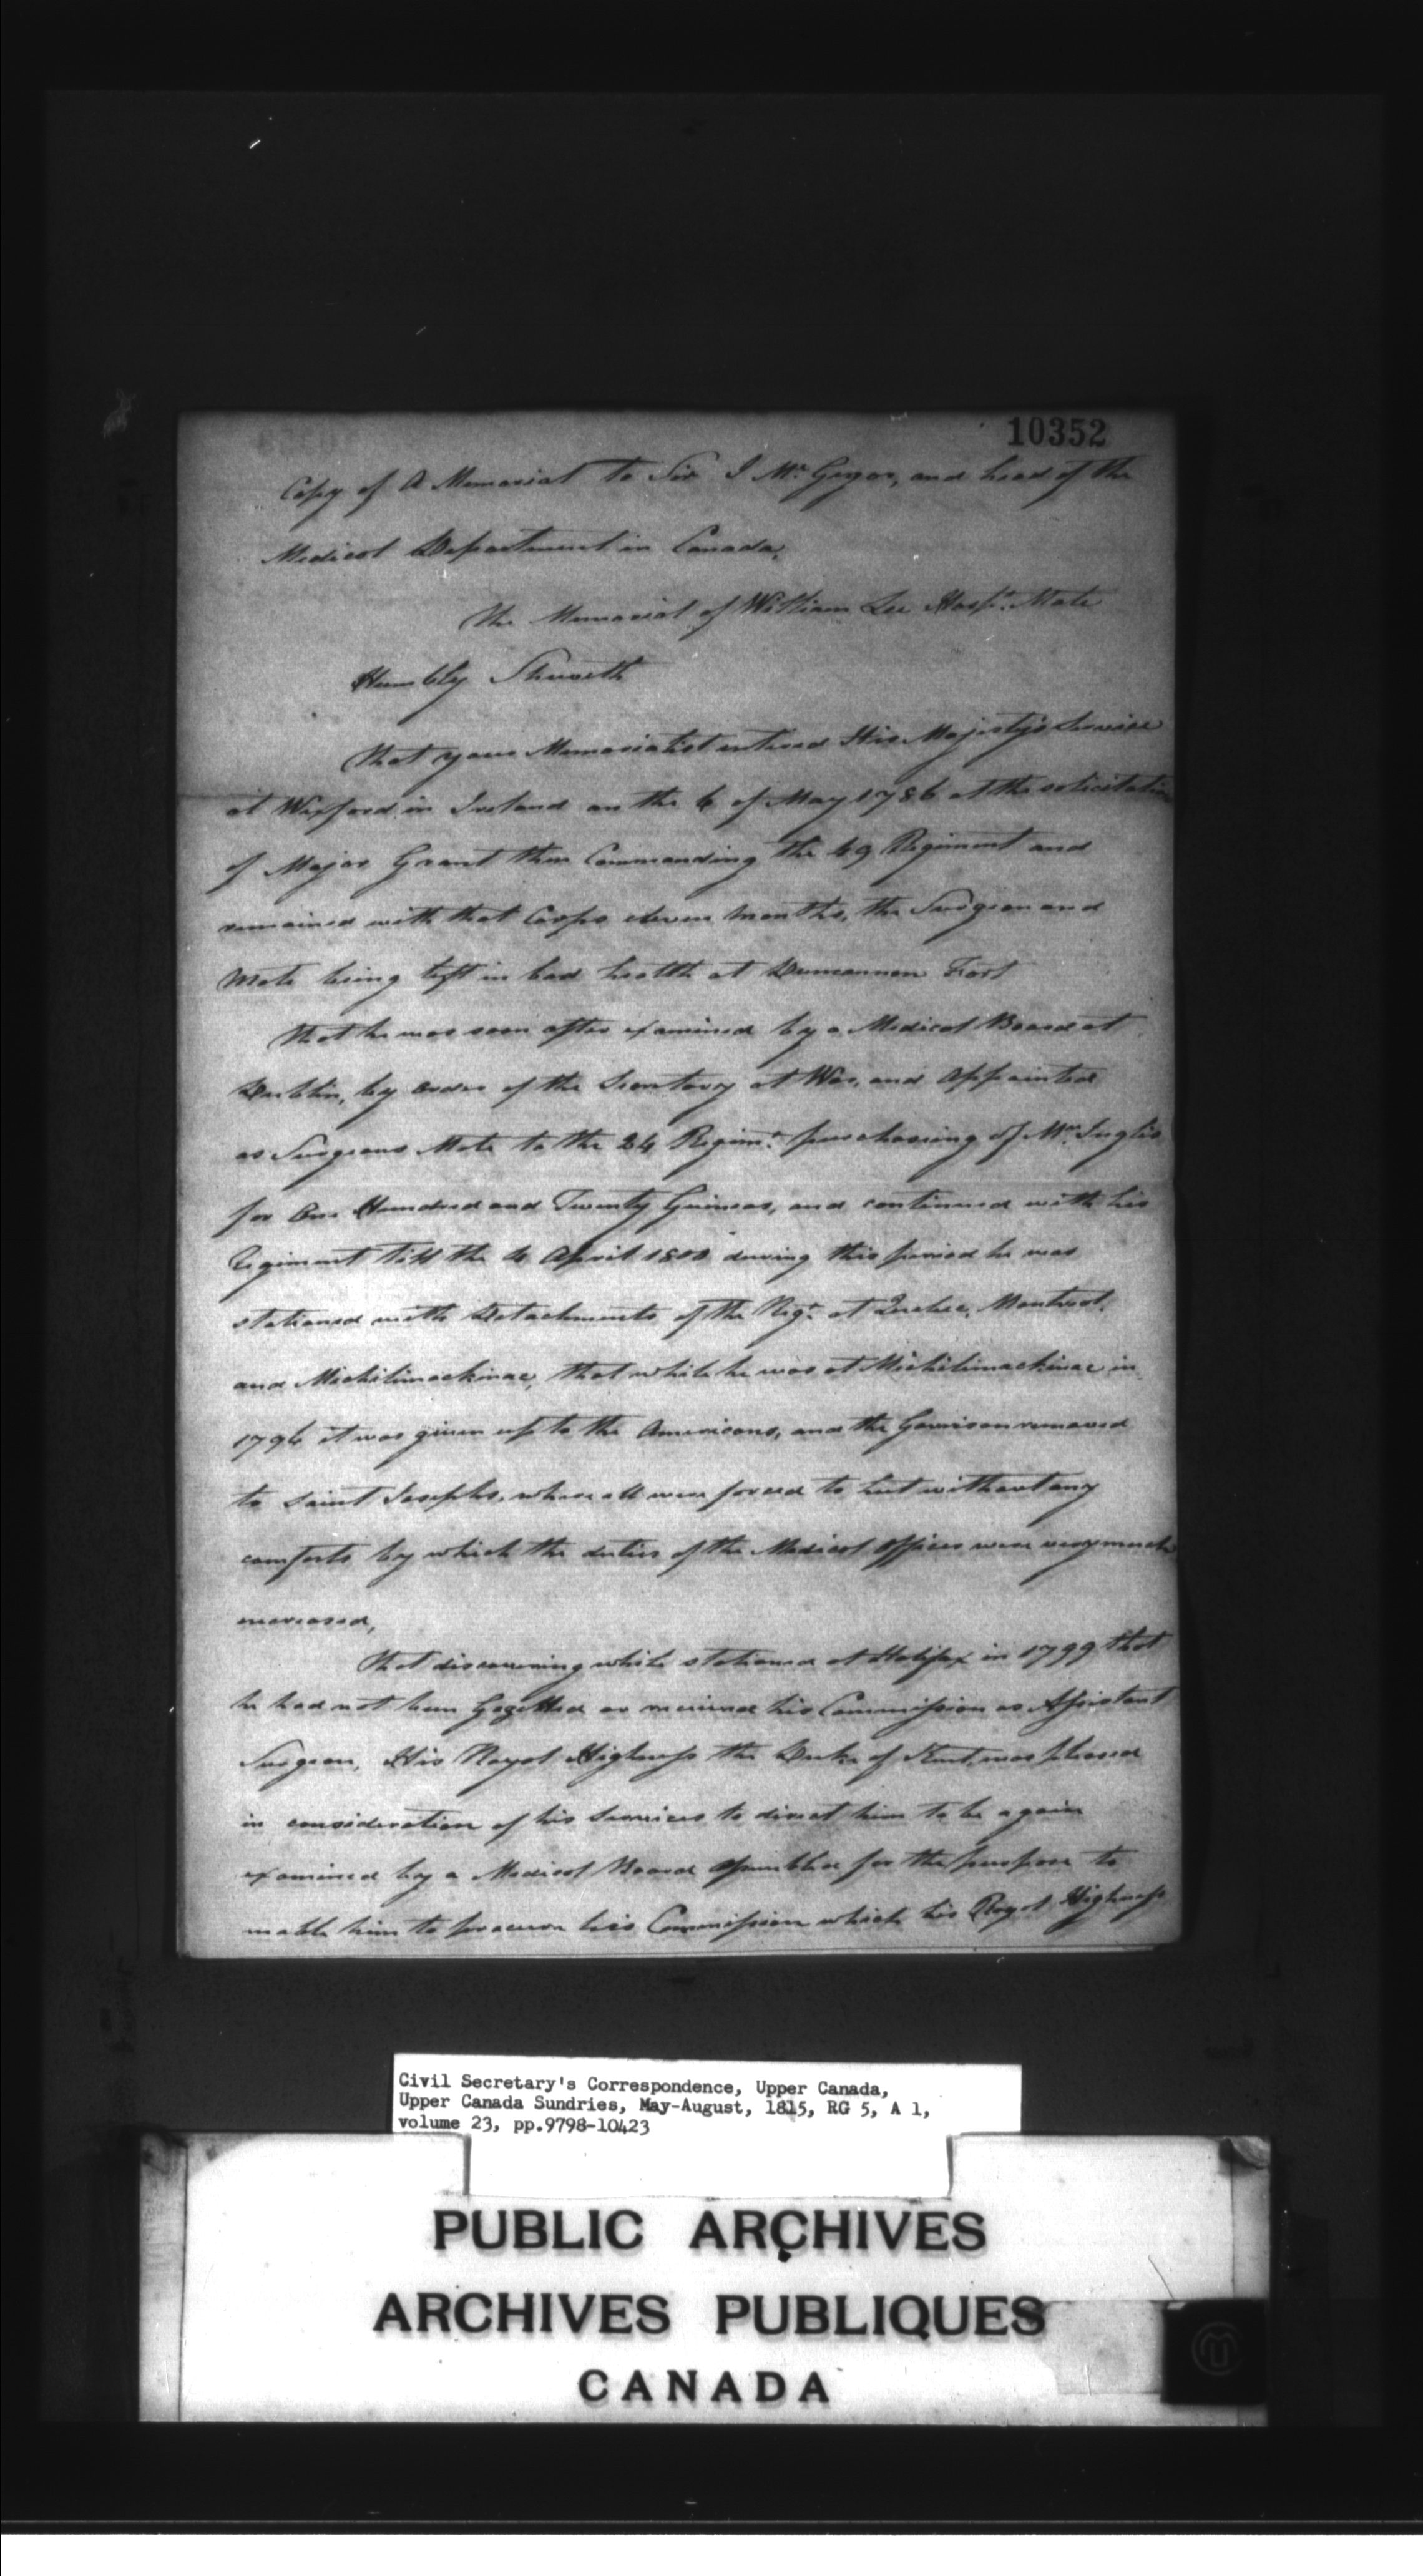 10352
Copy of A Memorial to Sir J Mc. Gregor, and head of the
Medical Department in Canada,
The Memorial of William Lee Hospl. Mate
Humbly Sheweth
That your Memorialist entered His Majesty's Service
at Wexford in Ireland on the 6 of May 1786 at the solicitation
of Major Grant then Commanding the 49 Regiment and
remained with that Corps eleven Months, the Surgeon and
Mate being left in bad health at Duncannon Fort
That he was soon after examined by a Medical Board at
Dublin, by order of the Secretary at War, and appointed
as Surgeons Mate to the 24 Regimt. purchasing of Mr. Inglis
for One Hundred and Twenty Guineas, and continued with his
Regiment till the 4 April 1800 during this period he was
stationed with Detachments of the Regt. at Quebec, Montreal,
and Michilimackinac, that while he was at Michilimackinac in
1796 it was given up to the Americans, and the Garrison removed
to Saint Josephs, where all were forced to hut without any
comforts by which the duties of the Medical Officer were very much
increased,
That discovering while stationed at Halifax in 1799 that
he had not been Gazetted or received his Commission as Assistant
Surgeon, His Royal Highness the Duke of Kent, was pleased
in consideration of his Services to direct him to be again
examined by a Medical Board assembled for the purpose to
enable him to procure his Commission which his Royal Highness
Civil Secretary's Correspondence, Upper Canada,
Upper Canada Sundries, May-August, 1815, RG 5, A 1,
volume 23, pp.9798-10423
PUBLIC ARCHIVES
ARCHIVES PUBLIQUES
CANADA